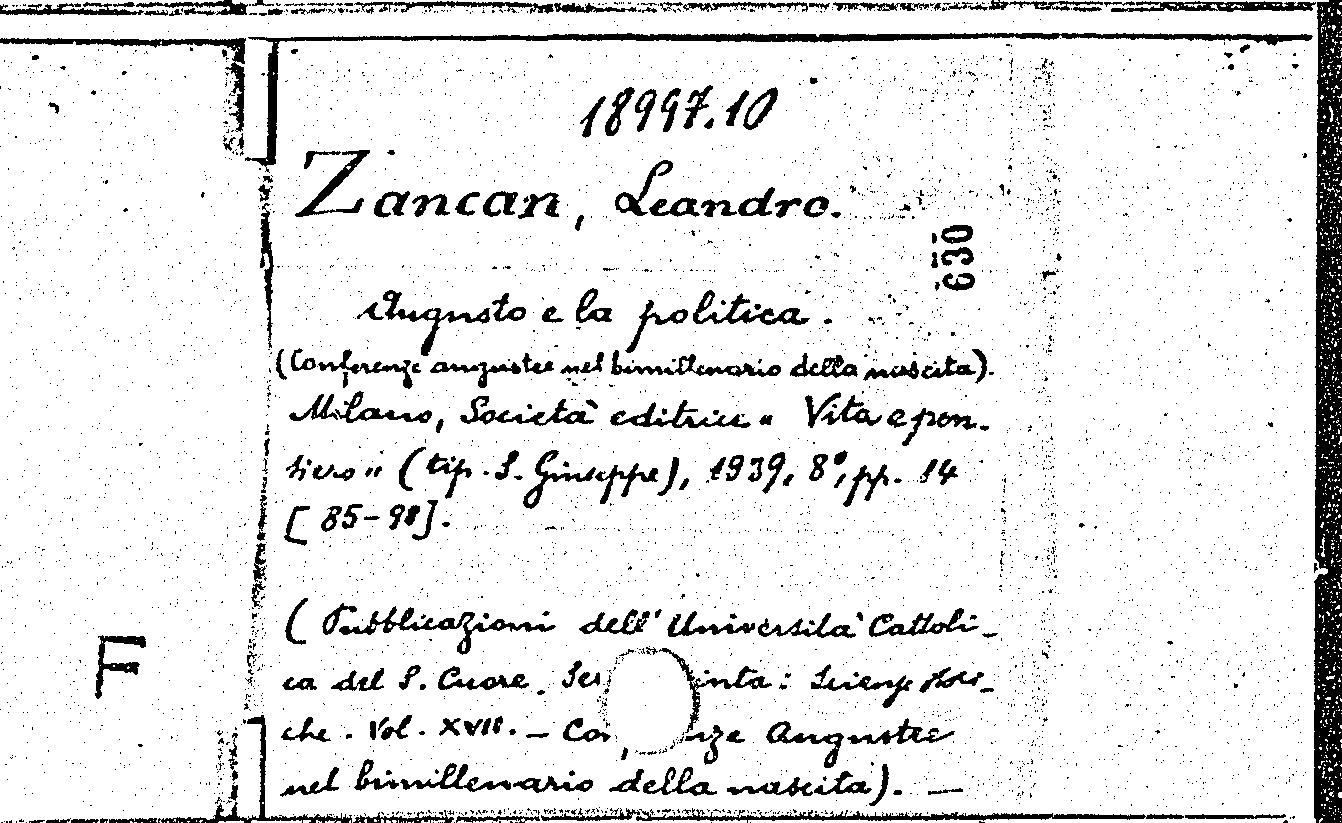 18997.10
Zancan, Leandro.
630
Augusto e la politica.
(Conferenze augustee nel bimillenario della nascita).
Milano, Società editrice "Vita e pen-
siero" (tip. S. Giuseppe), 1939, 8°, pp. 14
[85-98].
(Pubblicazioni dell'Università Cattoli-
ca del S. Cuore. Ser inta: Scienze stori-
che. Vol. XVII. - Con nze Augustee
nel bimillenario della nascita). —
F